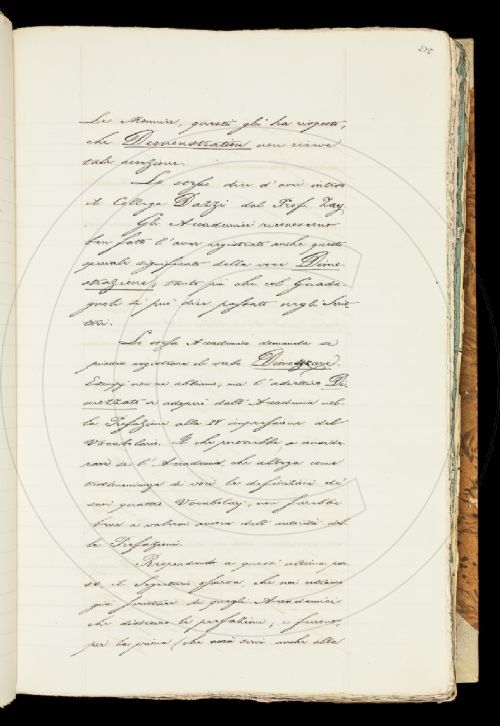 235
Le Monnier, questi gli ha risposto,
che Demonstration non riceve
tale accezione.
Lo stesso dice d'aver inteso
il Collega Dazzi dal Prof. Zay
Gli Accademici riconoscono
ben fatto l'aver registrato anche questo
speciale significato della voce Dimo-
strazione, tanto più che col Guada-
gnoli si può dire passato negli Scrit
tori.
Lo stesso Accademico domanda se
possa registrarsi il verbo
Esempj non ne abbiamo, ma l'adiettivo Di
si adoperò dall'Accademia nel-
la Prefazione alla IV impressione del
Vocabolario. Il che porterebbe a conside
rare se l'Accademia che allega come
testimonianza di voci le definizioni de'
suoi quattro Vocabolarj, non farebbe
bene a valersi ancora dell'autorità del
le Prefazioni.
Rispondendo a quest'ultimo pun-
to, il Segretario osserva, che noi
già di quegli Accademici
che distesero le prefazioni; e furono,
per la prima (che servì anche alla